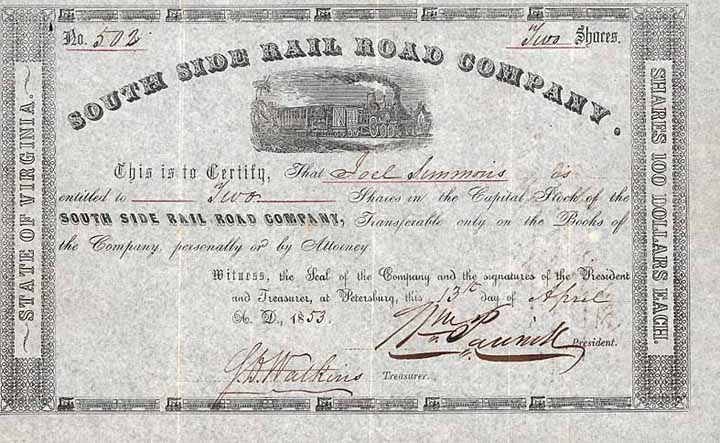 No. 502. Two Shares.
SOUTH SIDE RAIL ROAD COMPANY.
STATE OF VIRGINIA.
SHARES 100 DOLLARS EACH.
This is to Certify, That Joel Simmons is
entitled to Two Shares in the Capital Stock of the
SOUTH SIDE RAIL ROAD COMPANY, Transferable only on the Books of
the Company, personally or by Attorney
Witness, the Seal of the Company and the signatures of the President
and Treasurer, at Petersburg, this 13th day of April
A. D., 1853.
Wm. President.
Watkins Treasurer.